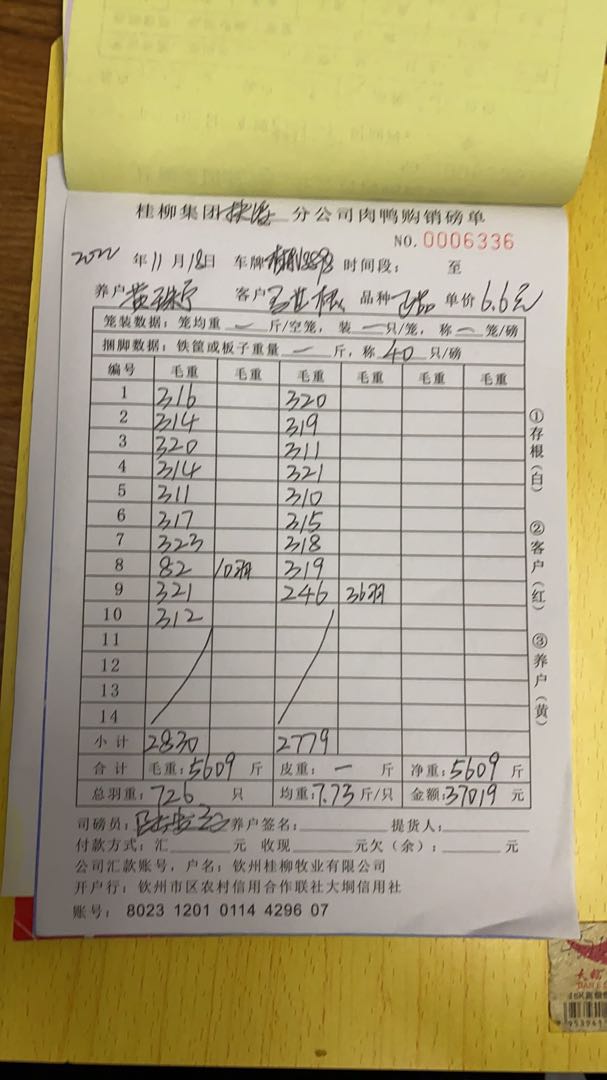 桂柳集团 分公司肉鸭购销磅单
NO.0006336
2022年11月18日 车牌 时间段: 至
养户 客户 品种 单价6.6元
笼装数据:笼均重 — 斤/空笼,装 — 只/笼,称 — 笼/磅
捆脚数据:铁筐或板子重量 — 斤,称 40 只/磅
编号 毛重 毛重 毛重 毛重 毛重 毛重
1 316 320
2 314 319
3 320 311
4 314 321
5 311 310
6 317 315
7 323 318
8 82 10羽 319
9 321 246 36羽
10 312
11
12
13
14
小计 2830 2779
合计 毛重:5609斤 皮重: — 斤 净重:5609斤
总羽重:726 只 均重:7.73斤/只 金额:37019元
司磅员: 养户签名: 提货人:
付款方式:汇 元 收现 元欠(余): 元
公司汇款账号,户名:钦州桂柳牧业有限公司
开户行:钦州市区农村信用合作联社大垌信用社
账号: 8023 1201 0114 4296 07
①存根(白)
②客户(红)
③养户(黄)